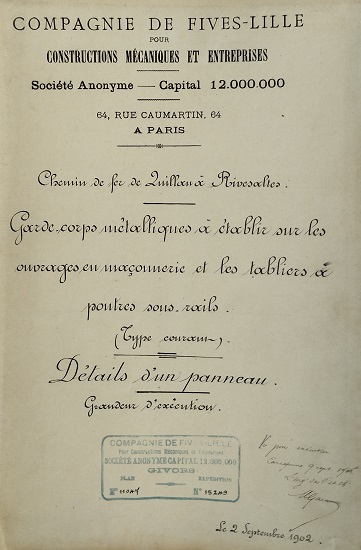 COMPAGNIE DE FIVES-LILLE
POUR
CONSTRUCTIONS MÉCANIQUES ET ENTREPRISES
Société Anonyme — Capital 12.000.000
64, RUE CAUMARTIN, 64
A PARIS
Chemin de fer de Quillan à Rivesaltes.
Garde-corps métalliques à établir sur les
ouvrages en maçonnerie et les tabliers à
poutres sous-rails.
(Type courant).
Détails d'un panneau.
Grandeur d'exécution.
COMPAGNIE DE FIVES-LILLE
Pour Constructions Mécaniques et Entreprises
SOCIÉTÉ ANONYME CAPITAL 12.000.000
GIVORS
PLAN EXPÉDITION
Le 2 Septembre 1902.